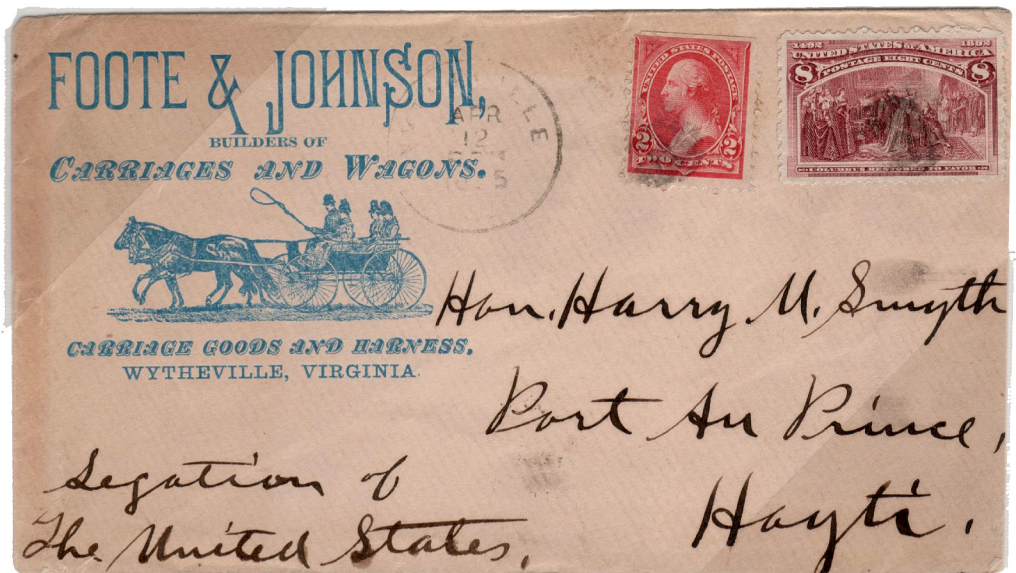 FOOTE & JOHNSON,
BUILDERS OF
CARRIAGES AND WAGONS.
CARRIAGE GOODS AND HARNESS,
WYTHEVILLE, VIRGINIA.
APR
12
UNITED STATES POSTAGE
2 2
TWO CENTS
1492 1892
UNITED STATES OF AMERICA
POSTAGE EIGHT CENTS
8 8
COLUMBUS RESTORED TO FAVOR
Hon. Harry M. Smyth
Port Au Prince,
Hayti.
Legation of
The United States,